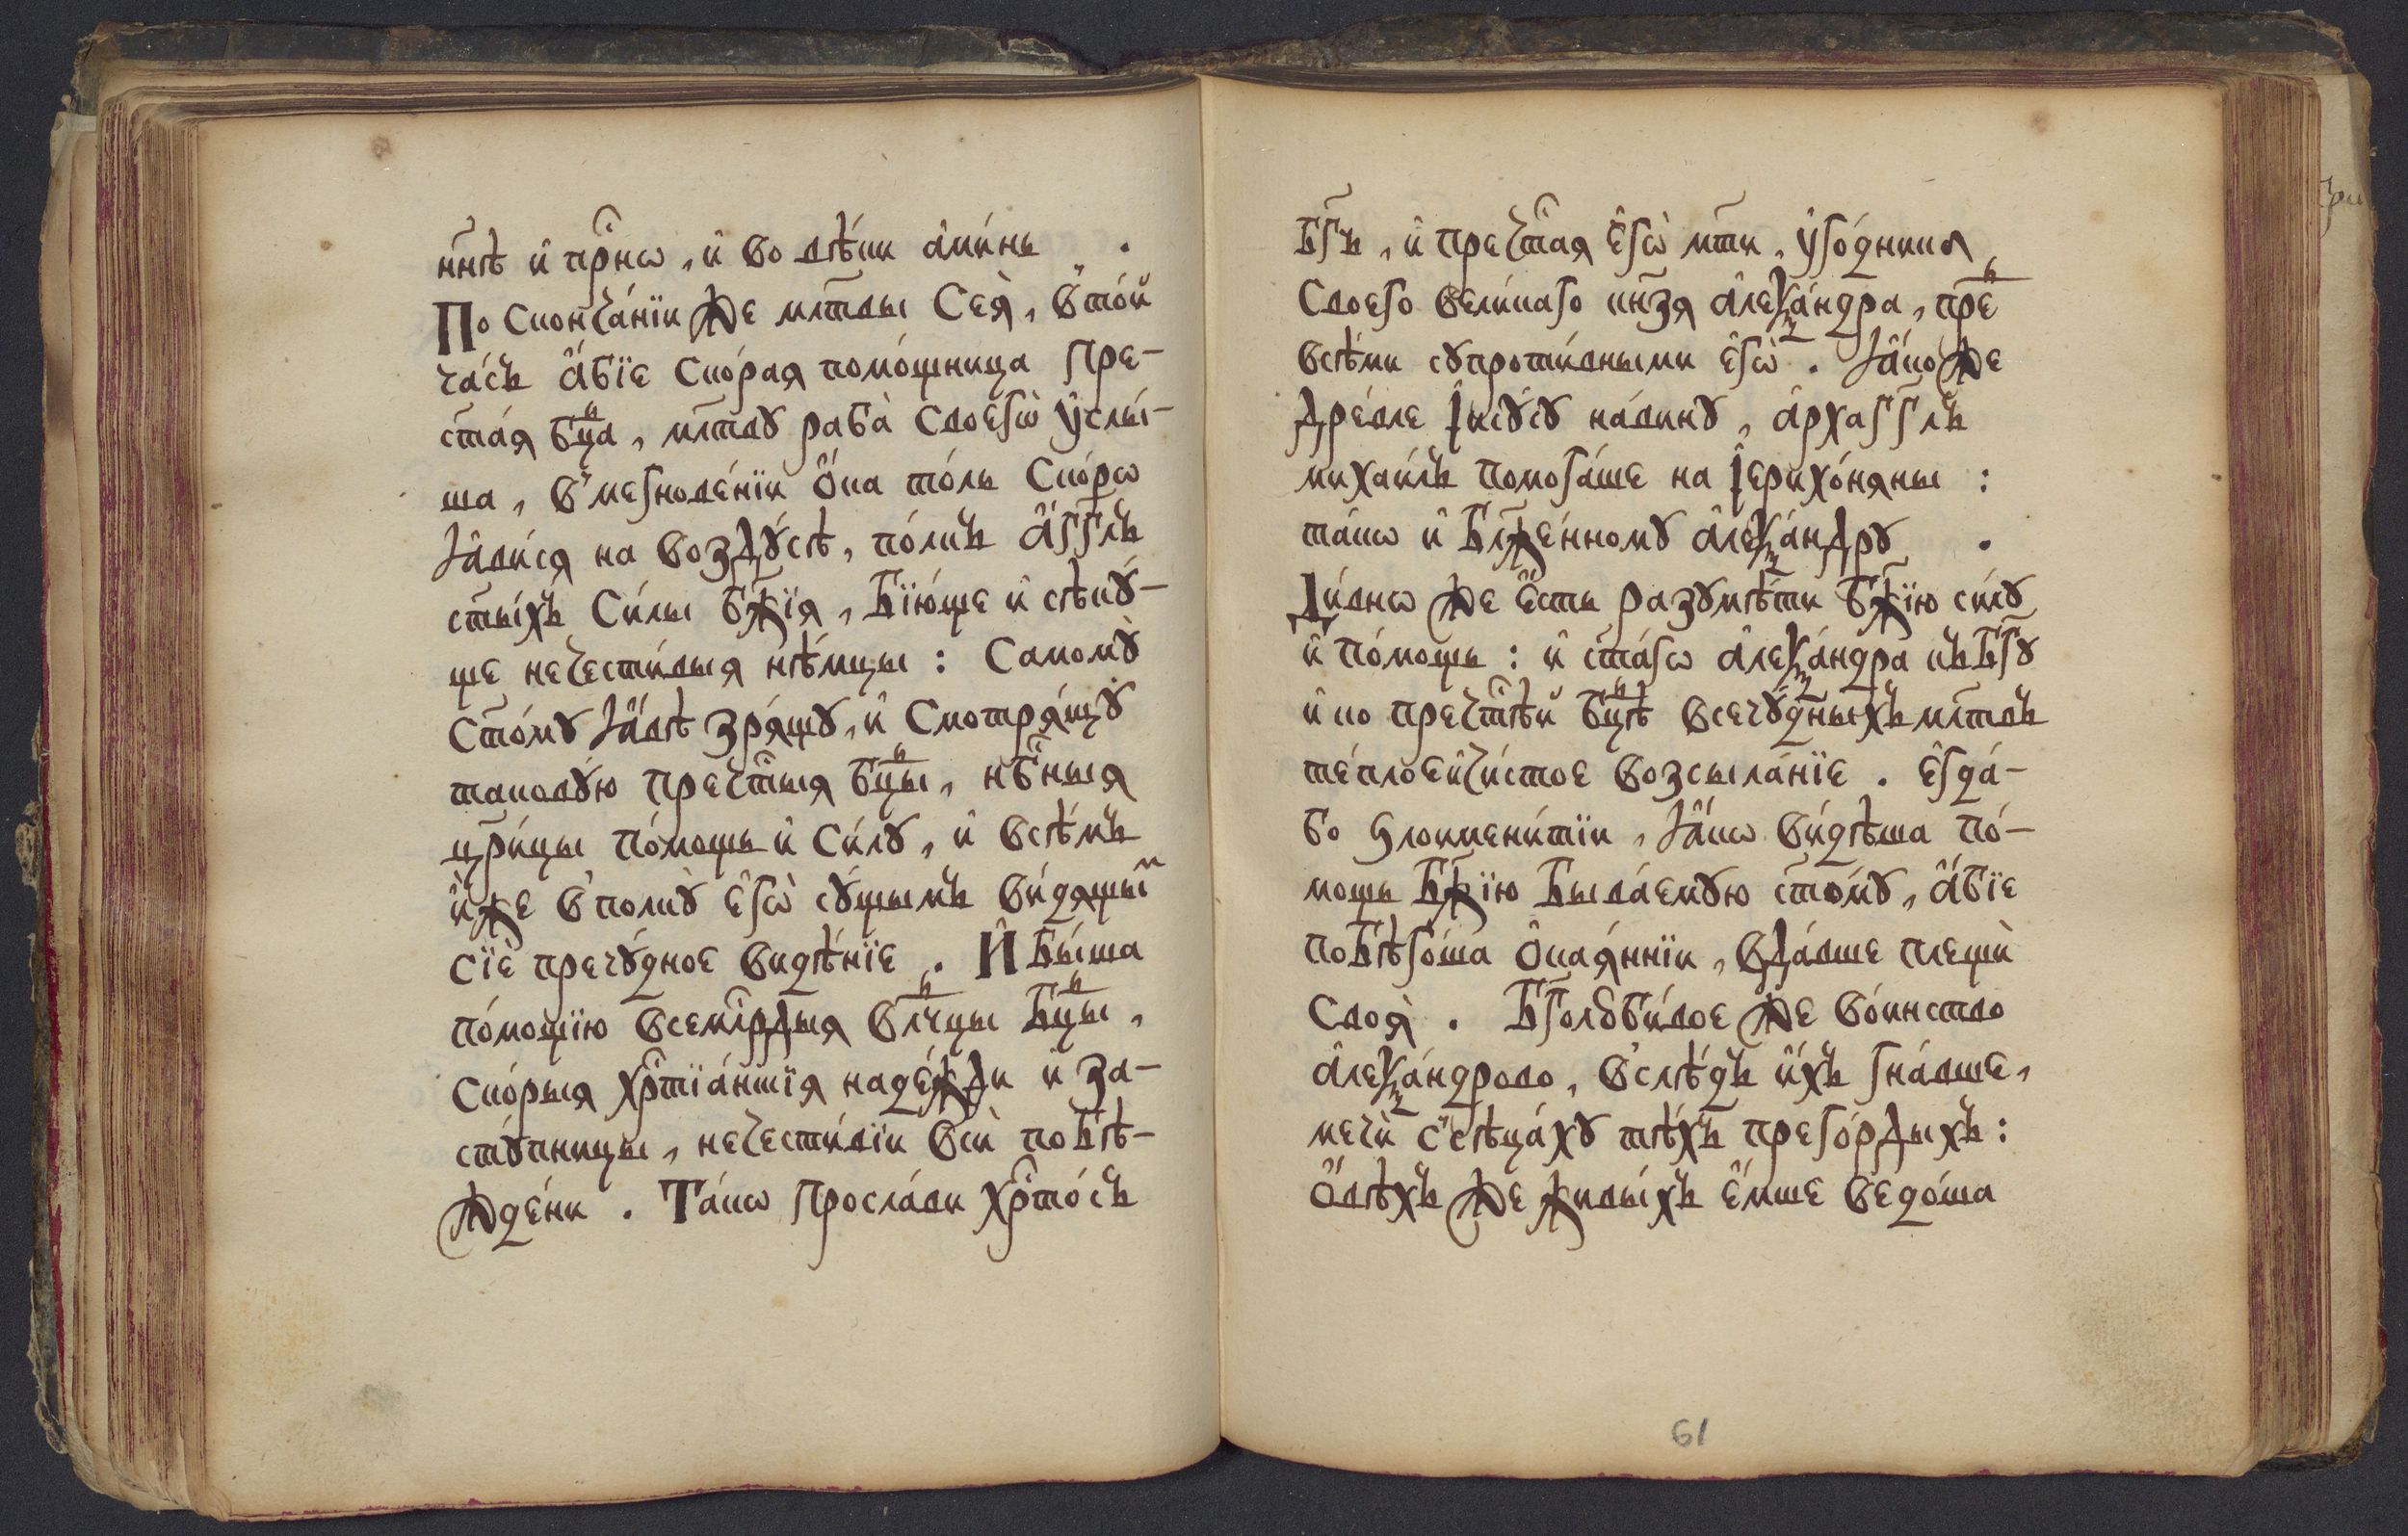 нн҃ѣ и҆ пр҇нѡ, и҆ во вѣ́ки а҆ми́нь .
По сконча́нїи же мл҃твы сея̀, в̾то́й
ча́съ а҆́бїе ско́рая помо́щница пре-
ст҃а́я бц҃да, мл҃твꙋ раба̀ своегѡ̀ ᲂу҆слы́-
ша, в̾мегнове́нїи ѻ҆́ка то́ль ско́рѡ
ꙗ҆ви́ся на воздꙋ́сѣ, по́лкъ а҆́гг҃лъ
ст҃ы́хъ си́лы бж҃їя, бїю́ще и҆ сѣкꙋ́-
ще нечести́выя нѣ́мцы : самомꙋ̀
ст҃о́мꙋ ꙗ҆́вѣ зря́щꙋ, и҆ смотря́щꙋ
таковꙋ́ю преч҇тыя бц҃ды, нб҇ныя
цр҃и́цы по́мощь и҆ си́лꙋ, и҆ всѣ́мъ
и҆́же в̾полкꙋ̀ є҆гѡ̀ сꙋ́щымъ ви́дящым
сїѐ пречꙋ́дное видѣ́нїе . И҆ бы́ша
по́мощїю всемл҇рдыя влч҃цды бц҃ды,
ско́рыя хр҇тїа́нскїя наде́жди и҆ за-
стꙋ́пницы, нечести́вїи всѝ побѣ-
жде́ни . Та́кѡ просла́ви хр҇то́съ
61
бг҃ъ, и҆ преч҇тая є҆гѡ̀ мт҃и, ᲂу҆го́дника
своего вели́каго кн҃зя а҆леѯа́ндра, пред
всѣ́ми сꙋпроти́вными є҆гѡ̀ . ꙗ҆́коже
дре́вле і҆исꙋ́сꙋ на́винꙋ, а҆рхагг҃лъ
михаи́лъ помога́ше на і҆ерихо́няны :
та́кѡ и҆ бл҃же́нномꙋ а҆леѯа́ндрꙋ .
Ди́внѡ же є҆́сть разꙋмѣ́ти бж҃їю си́лꙋ
и҆ по́мощь : и҆ ст҃а́гѡ а҆леѯа́ндра къ бг҃ꙋ
и҆ ко преч҇тѣй бц҃дѣ всечꙋ́дныхъ мл҃твъ
те́плое и҆ чи́стое возсыла́нїе . є҆гда́-
бо ѕлоимени́тїи, ꙗ҆́кѡ ви́дѣша по́-
мощь бж҃їю быва́емꙋю ст҃о́мꙋ, а҆́бїе
побѣго́ша ѻ҆кая́ннїи, вда́вше плещѝ
своя̀ . Бг҃олюби́вое же во́инство
а҆леѯа́ндрово, в̾слѣ́дъ и҆́хъ гна́вше,
мечи̑ с̾сѣца́хꙋ тѣ́хъ прего́рдыхъ :
ѻ҆́вѣхъ же живы́хъ є҆́мше ведо́ша